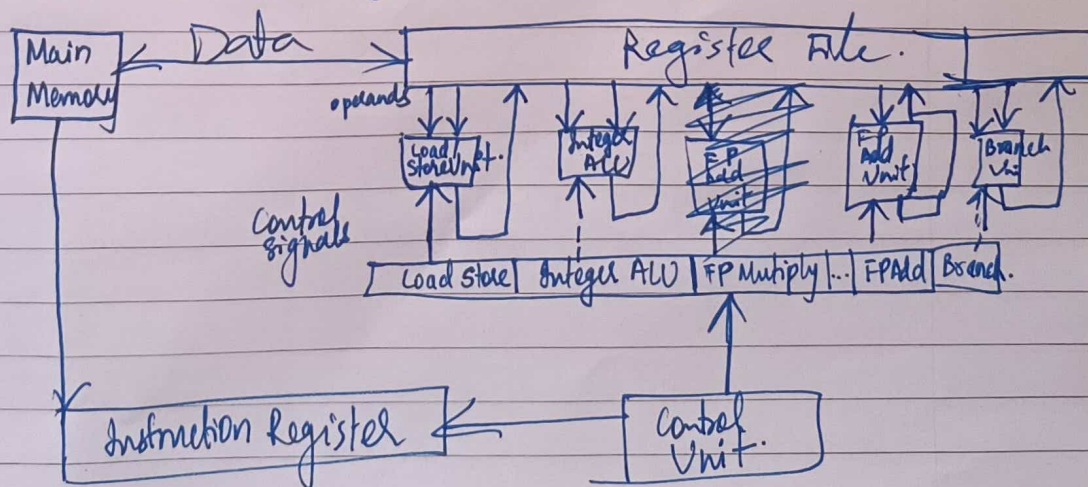 Data
Register File.
Main
Memory
operands
Load
Store Unit.
Integer
ALU
FP
Add
Unit
FP
Add
Unit
Branch
Control
signals
Load Store
Integer ALU
FP Multiply
...
FPAdd
Branch.
Instruction Register
Control
Unit.